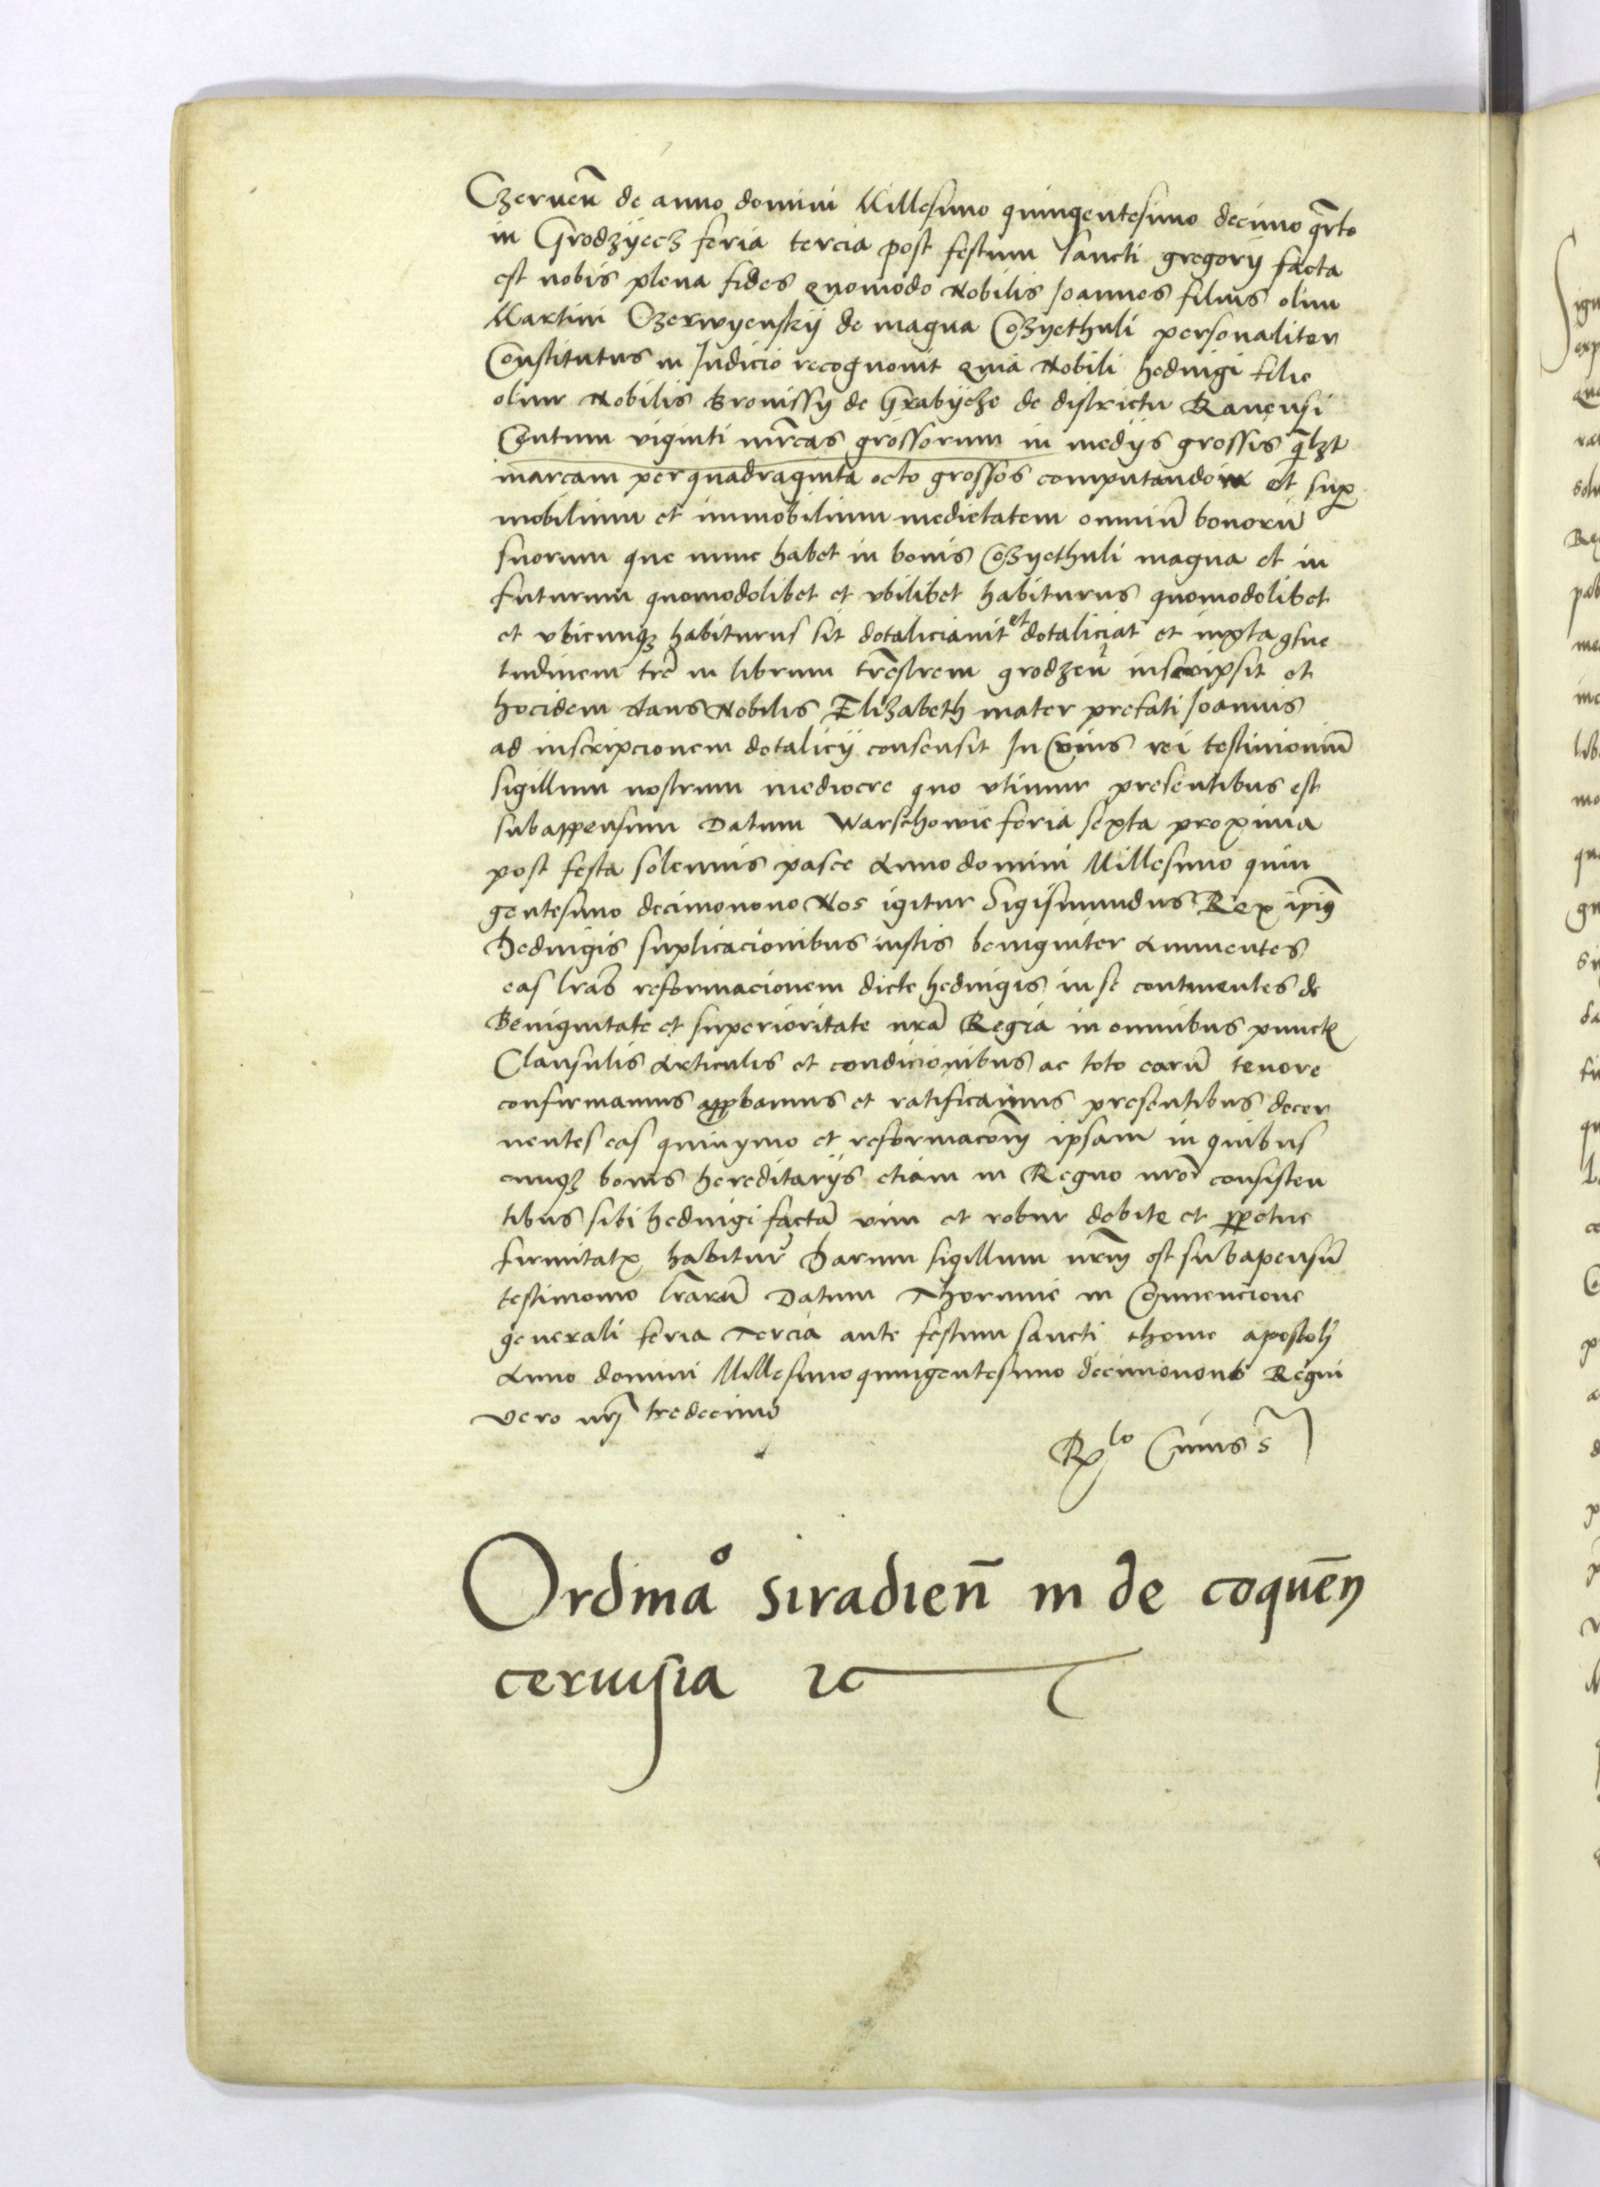 Czerneñ de anno domini Millesimo quingentesimo decimo qrto
in Grodzyecz feria tercia post festum sancti gregorij facta
est nobis plena fides quomodo Nobilis Joannes filius olim
Martini Czerwyenskij de magna Cozyethuli personaliter
Constitutus in Judicio recognouit quia Nobili hedwigi filie
olim Nobilis Bronissy de Grabycze de districtu Rauensi
Centum viginti mrcas grossorum in medijs grossis qlzt
marcam per quadraginta octo grossos computando et sup
mobilium et immobilium medietatem omniū bonorū
suorum que nunc habet in bonis Cozyethuli magna et in
futurum quomodolibet et vbilibet habiturus quomodolibet
et vbicunqz habiturus sit dotaliciauit et dotaliciat et iuxta gsue
tudinem tre in librum trestrem grodzeñ inscripsit et
hocidem stans Nobilis Elizabeth mater prefati Joannis
ad inscripcionem dotalicij consensit In Cuius rei testimoniū
sigillum nostrum mediocre quo vtimur presentibus est
subappensum Datum Warschowie feria sexta proxima
post festa solennis pasce Anno domini Millesimo quin
gentesimo decimonono Nos igitur Sigismundus Rex ipius
Hedwigis suplicacionibus iustis benigniter Annuentes
eas lras reformacionem dicte hedwigis in se continentes de
Benignitate et superioritate nra Regia in omnibus punctis
Clausulis Articulis et condicionibus ac toto earū tenore
confirmamus approbamus et ratificamus presentibus decer
nentes eas quinymo et reformacoem ipsam in quibus
cunqz bonis hereditarijs etiam in Regno nro consisten
tibus sibi hedwigi factā vim et robur debite et perpetue
firmitatis habitur Harum sigillum nrm est subapensū
testimonio lrarū Datum Thorunie in Conuencione
generali feria Tercia ante festum sancti thome apostoli
Anno domini Millesimo quingentesimo decimonono Regni
vero nrj tredecimo
Rlo Cuius s
Ordinao siradieñ in de coquēn
ceruisia zc